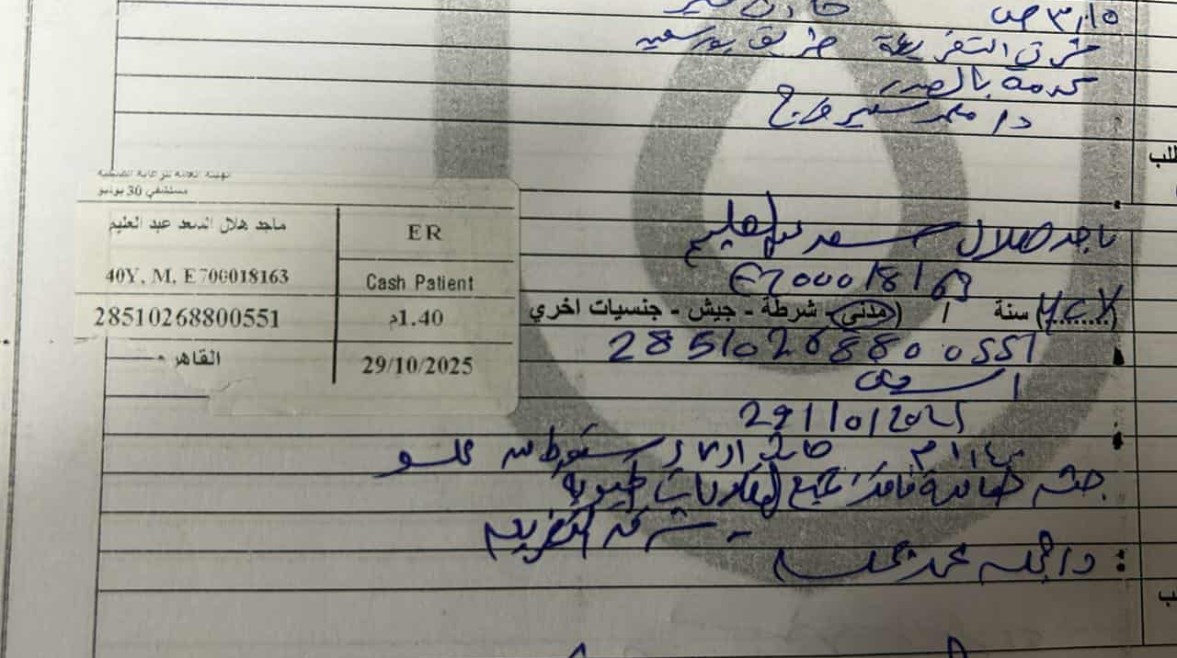 ٣,١٥ ص
شرق التفريعة طريق بورسعيد
كدمة بالصدر
د/ محمد سمير فرج
الهيئة العامة للرعاية الصحية
مستشفي 30 يونيو
ماجد هلال السعد عبد العليم
ER
40Y, M, E700018163
Cash Patient
28510268800551
1.40م
القاهر
29/10/2025
ماجد هلال سعد عبد العليم
E700018163
سنة / (مدني - شرطة - جيش - جنسيات اخري)
28510268800551
29/10/2025
سقوط من علو
جثه هامدة فاقد لجميع العلامات الحيوية
شرق التفريعه
د/ محمد